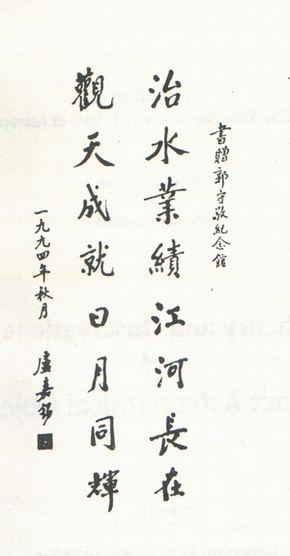 書贈郭守敬紀念館
治水業績江河長在
觀天成就日月同輝
一九九四年秋月
盧嘉錫